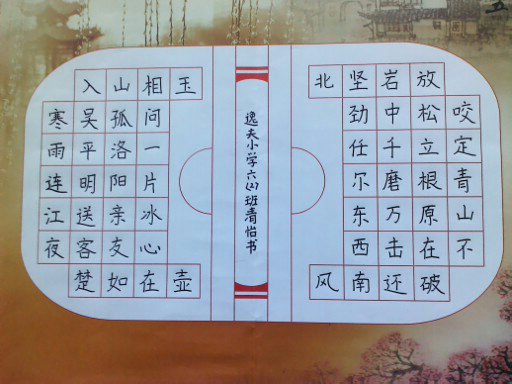 咬定青山不
放松立根原在破
岩中千磨万击还
坚劲任尔东西南
北风
逸夫小学六(2)班青怡书
寒雨连江夜
入吴平明送客楚
山孤洛阳亲友如
相问一片冰心在
玉壶